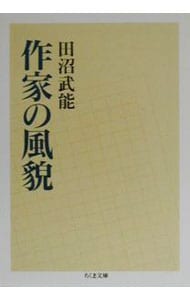 田沼武能
作家の風貌
ちくま文庫